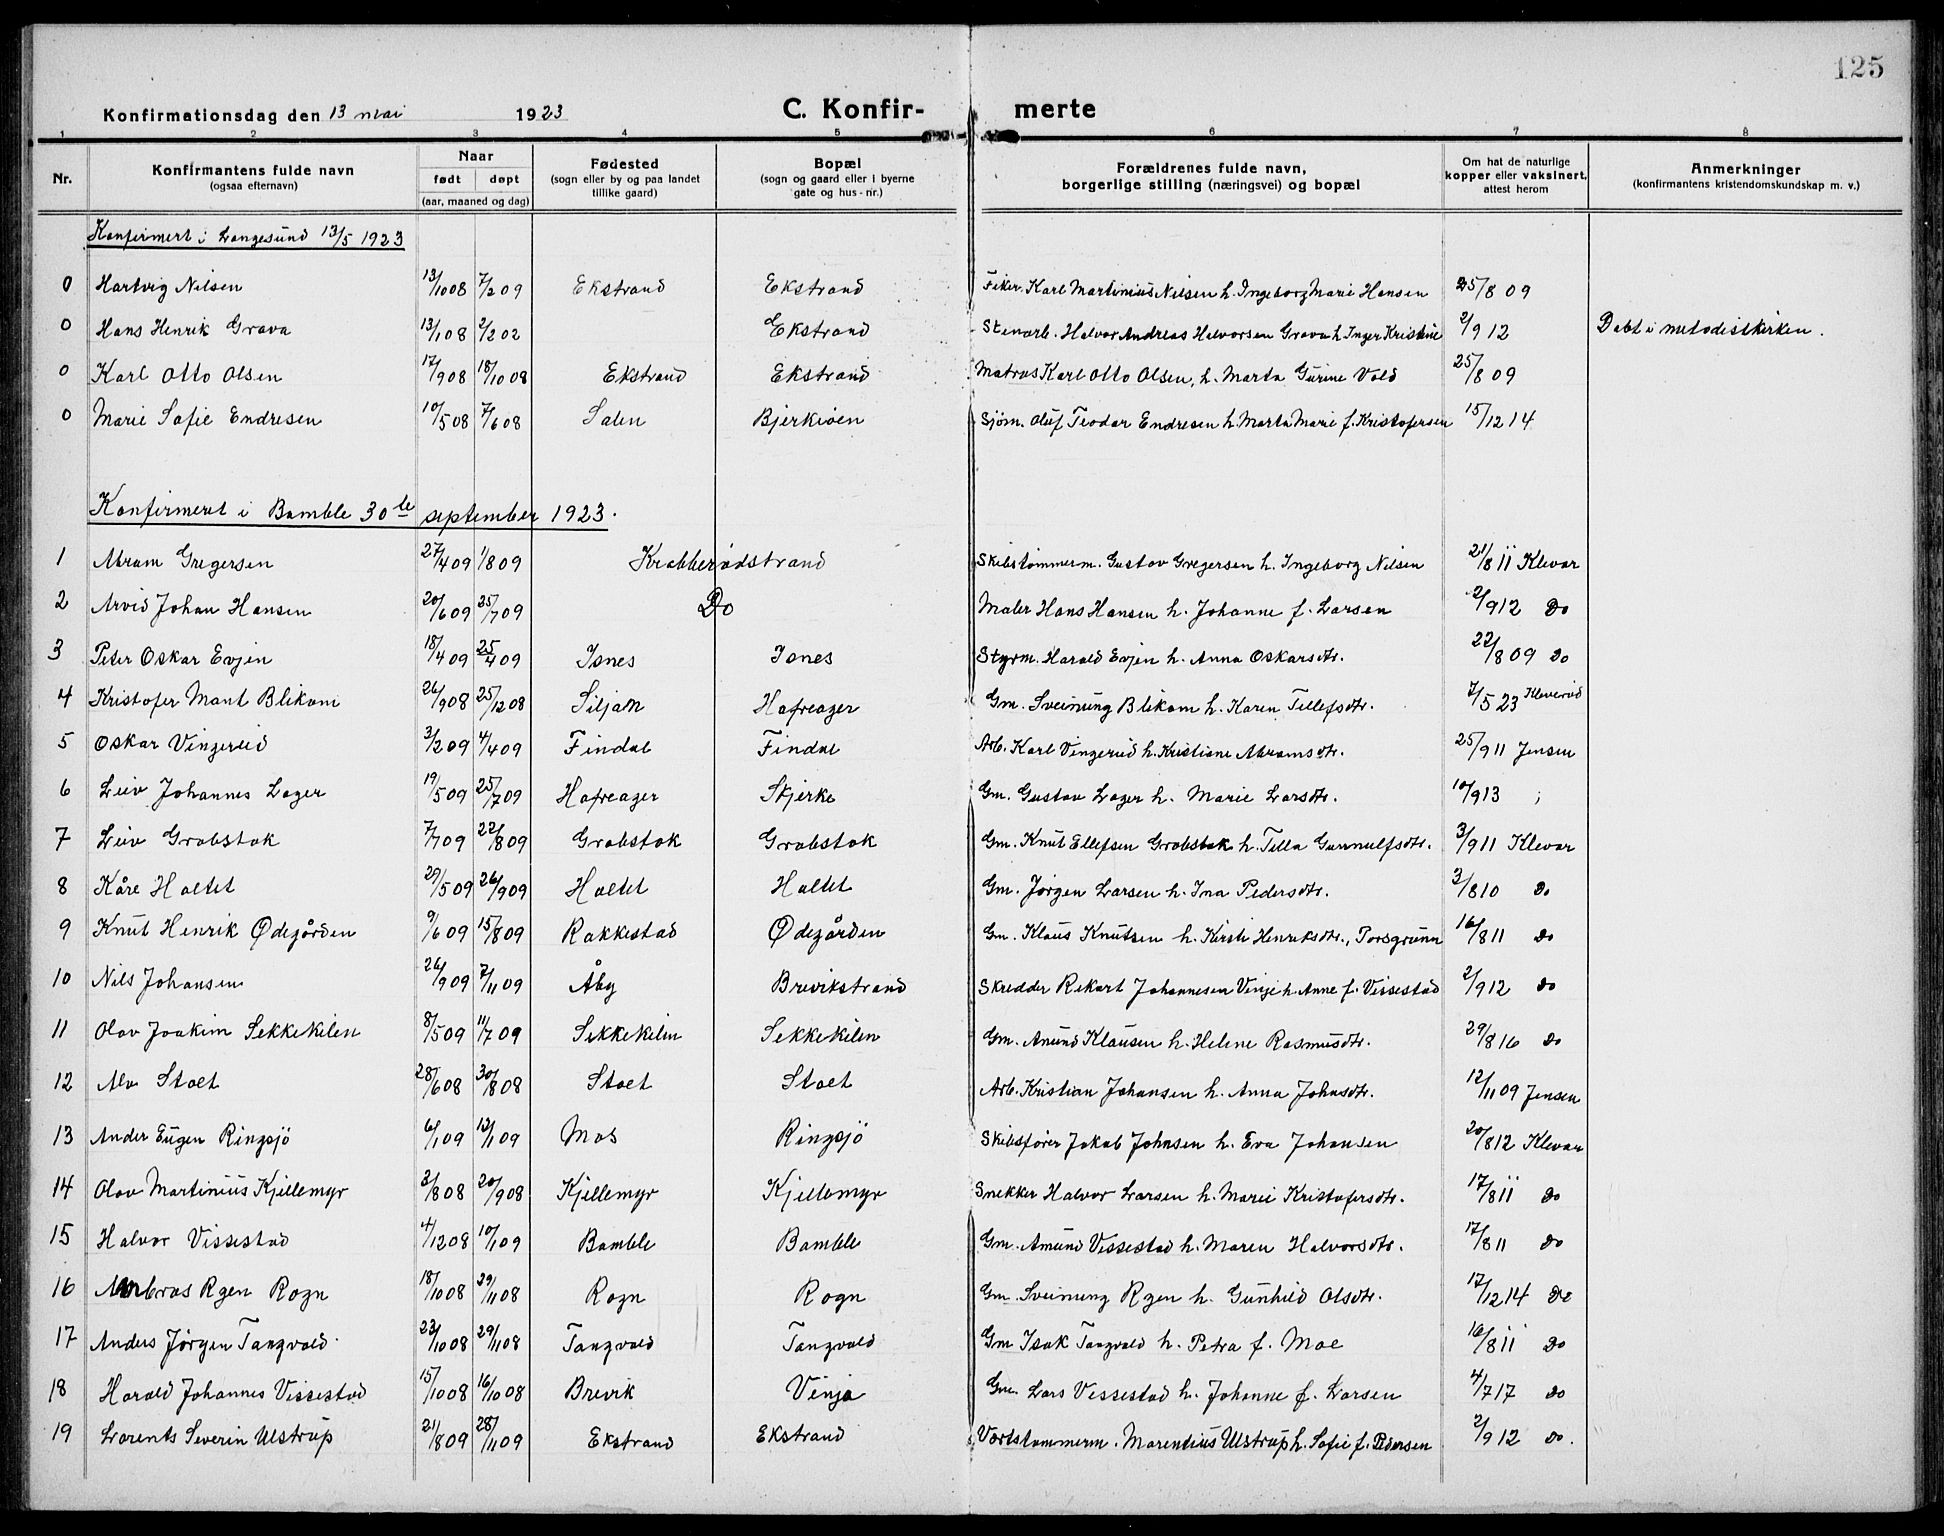 125
Konfirmationsdag den 13 mai 1923 C. Konfir- merte
1 2 3 4 5 6 7 8
Nr. Konfirmantens fulde navn (ogsaa efternavn) Naar født døpt (aar, maaned og dag) Fødested (sogn eller by og paa landet tillike gaard) Bopæl (sogn og gaard eller i byerne gate og hus-nr.) Forældrenes fulde navn, borgerlige stilling (næringsvei) og bopæl Om hat de naturlige kopper eller vaksinert, attest herom Anmerkninger (konfirmantens kristendomskundskap m. v.)
Konfirmert i Langesund 13/5 1923
0 Hartvig Nilsen 13/10 08 7/2 09 Ekstrand Ekstrand Fisker Karl Martinius Nilsen h. Ingeborg Marie Hansen 25/8 09
0 Hans Henrik Grava 13/1 08 2/2 02 Ekstrand Stenarb. Halvor Andreas Halvorsen Grava h. Inger Kristine 2/9 12 Døbt i metodistkirken.
0 Karl Otto Olsen 17/9 08 18/10 08 Ekstrand Ekstrand Matros Karl Otto Olsen, h. Marta Gurine Vold 25/8 09
0 Marie Sofie Endresen 10/5 08 7/6 08 Salen Bjerkøen Sjøm. Oluf Teodor Endresen h. Marta Marie f. Kristofersen 15/12 14
Konfirmeret i Bamble 30te september 1923.
1 Abram Gregersen 27/4 09 1/8 09 Krabberødstrand Skibstømmerm. Gustav Gregersen h. Ingeborg Nilsen 21/8 11 Klevar
2 Arvid Johan Hansen 20/6 09 25/7 09 Do Maler Hans Hansen h. Johanne f. Larsen 2/9 12 Do
3 Peter Oskar Evjen 18/4 09 25/4 09 Isnes Isnes Styrm. Harald Evjen h. Anna Oskarsdtr. 22/8 09 Do
4 Kristofer Mant Blikom 26/9 08 25/12 08 Siljan Hafreager Gm. Sveinung Blikom h. Karen Tellefsdtr. 7/5 23 Kleverød
5 Oskar Vingereid 3/2 09 4/4 09 Findal Findal Arb. Karl Vingereid h. Kristiane Abramsdtr. 25/9 11 Jensen
6 Leiv Johannes Lager 19/5 09 25/7 09 Hafreager Skjerke Gm. Gustav Lager h. Marie Larsdtr. 10/9 13 ;
7 Leiv Grobstok 7/7 09 22/8 09 Grobstok Grobstok Gm. Knut Ellefsen Grobstok h. Tella Gunnulfsdtr. 3/9 11 Klevar
8 Kåre Haltet 29/5 09 26/9 09 Haltet Haltet Gm. Jørgen Larsen h. Ina Pedersdtr. 3/8 10 Do
9 Knut Henrik Ødegården 9/6 09 15/8 09 Rakkestad Ødegården Gm. Klaus Knutsen h. Kirsti Henriksdtr., Porsgrunn 16/8 11 Do
10 Nils Johansen 26/9 09 7/11 09 Åby Brevikstrand Skredder Rikart Johannesen Vinje h. Anne f. Vissestad 2/9 12 Do
11 Olav Joakim Sekkekilen 8/5 09 11/7 09 Sekkekilen Sekkekilen Gm. Amund Klausen h. Helene Rasmusdtr. 29/8 16 Do
12 Alv Stoet 28/6 08 30/8 08 Stoet Stoet Arb. Kristian Johansen h. Anna Johnsdtr. 12/11 09 Jensen
13 Ander Eugen Ringsjö 6/1 09 13/1 09 Mos Ringsjö Skibsfører Jakob Johnsen h. Eva Johansen 20/8 12 Klevar
14 Olav Martinius Kjellemyr 3/8 08 20/9 08 Kjellemyr Kjellemyr Snekker Halvor Larsen h. Marie Kristofersdtr. 17/8 11 Do
15 Halvor Vissestad 4/12 08 10/1 09 Bamble Bamble Gm. Amund Vissestad h. Maren Halvorsdtr. 17/8 11 Do
16 Ambros Rgen Rogn 18/10 08 29/11 08 Rogn Rogn Gm. Sveinung Rgen h. Gunhild Olsdtr. 17/12 14 Do
17 Anders Jørgen Tangvald 23/10 08 29/11 08 Tangvald Tangvald Gm Isak Tangvald h. Petra f. Moe 16/8 11 Do
18 Harald Johannes Vissestad 15/10 08 16/10 08 Brevik Vinja Gm. Lars Vissestad h. Johanne f. Larsen 4/7 17 Do
19 Lorents Severin Ulstrup 21/8 09 28/11 09 Ekstrand Ekstrand Værtstømmerm. Marentius Ulstrup h. Sofie f. Pedersen 2/9 12 Do.